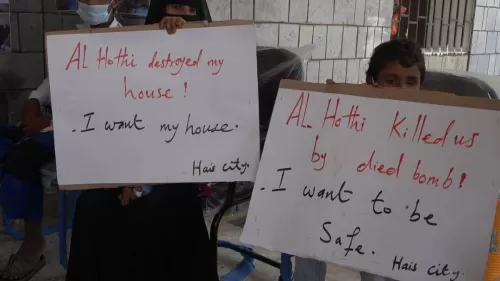 AL Hothi destroyed my
house!
. I want my house.
Hais city.
AL Hothi Killed us
by died bomb!
. I want to be
Safe.
Hais city.